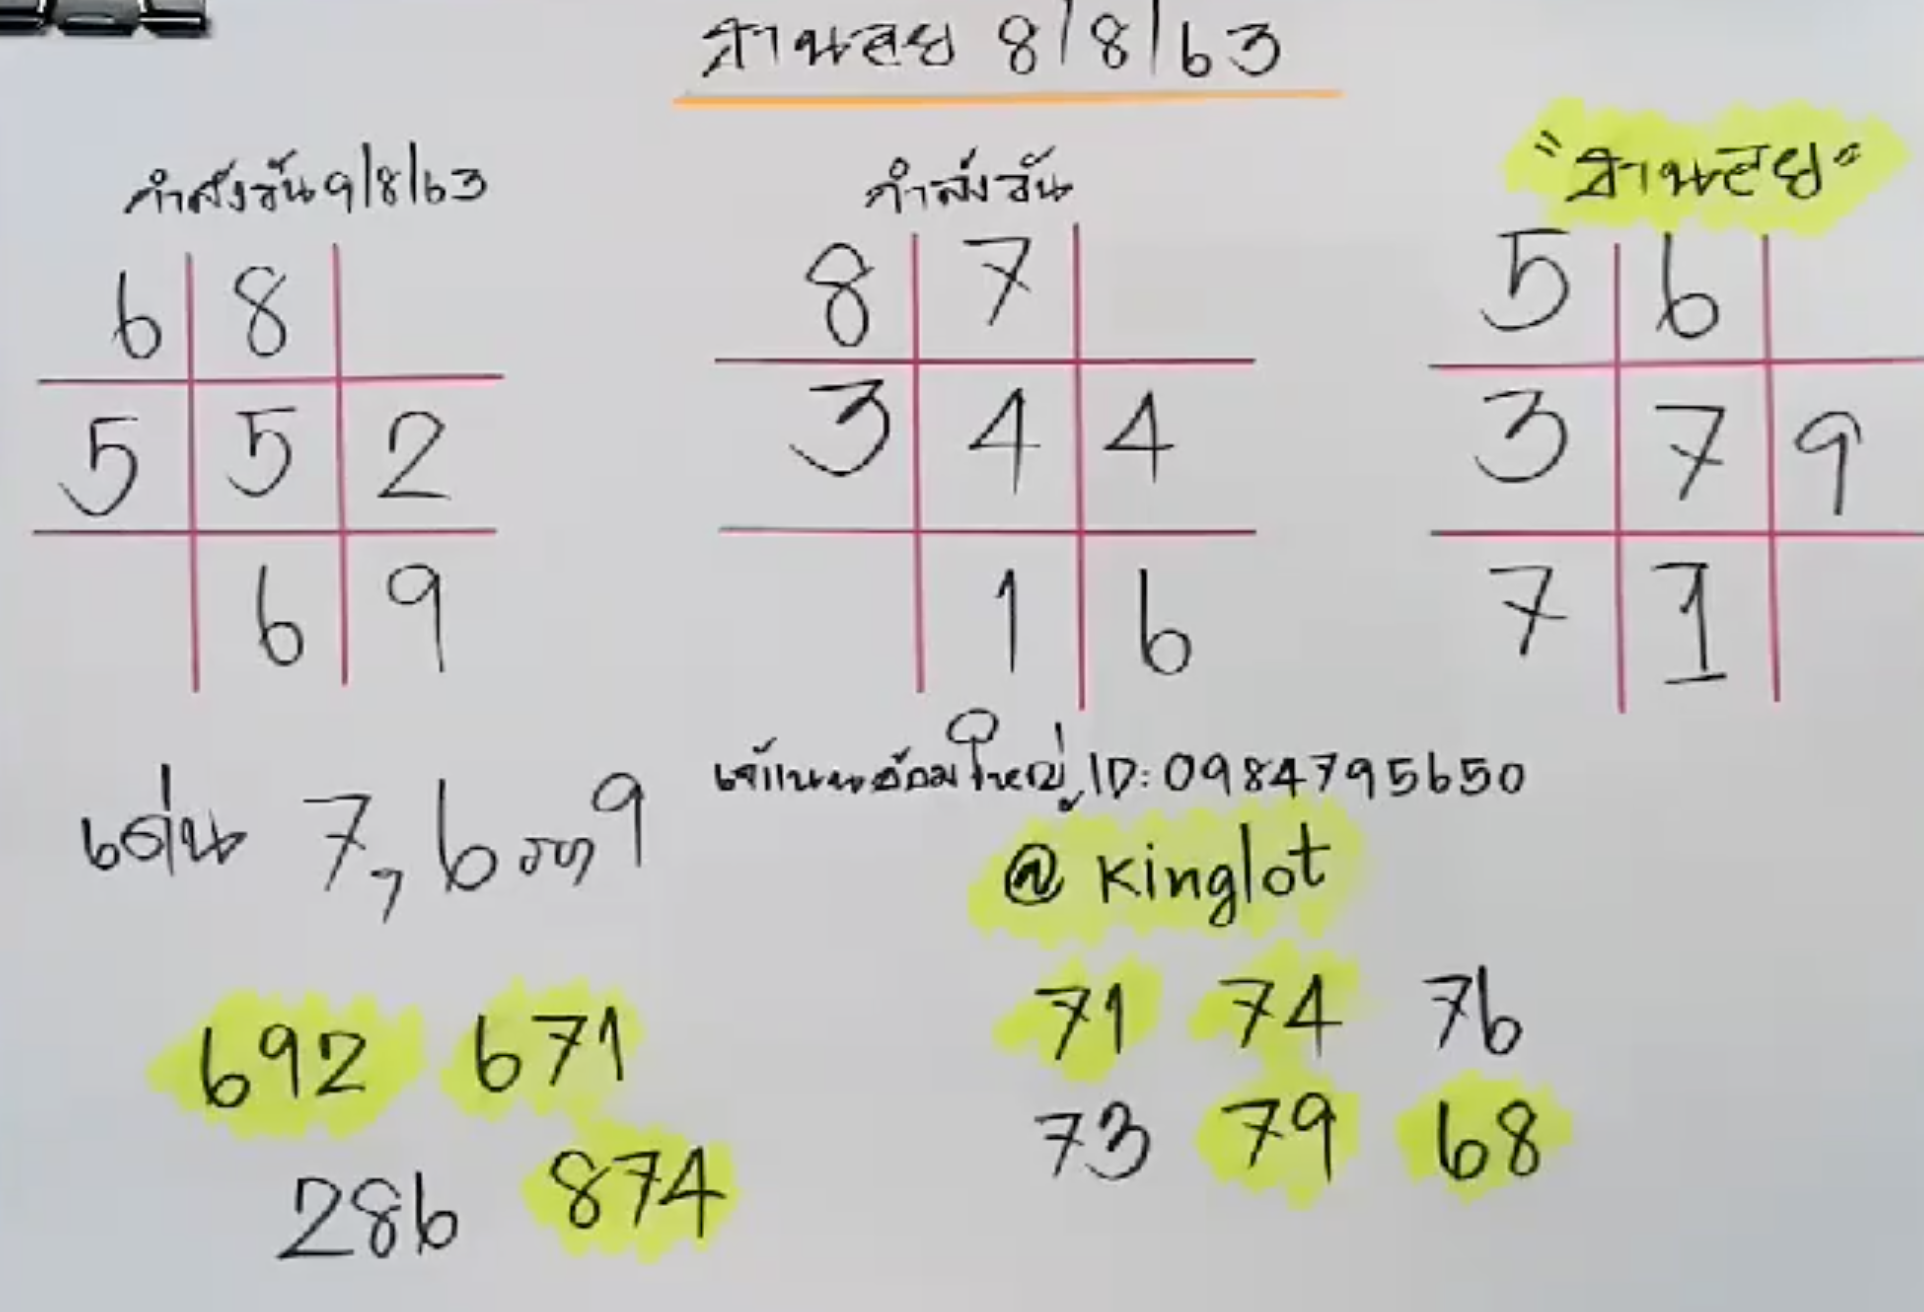 ฮานอย 8/8/63
กำลังวัน 9/8/63
6 8
5 5 2
6 9
กำลังวัน
8 7
3 4 4
1 6
"ฮานอย"
5 6
3 7 9
7 1
เด่น 7, 6 รอง 9
692 671
286 874
ใหญ่ ID: 0984795650
@ kinglot
71 74 76
73 79 68